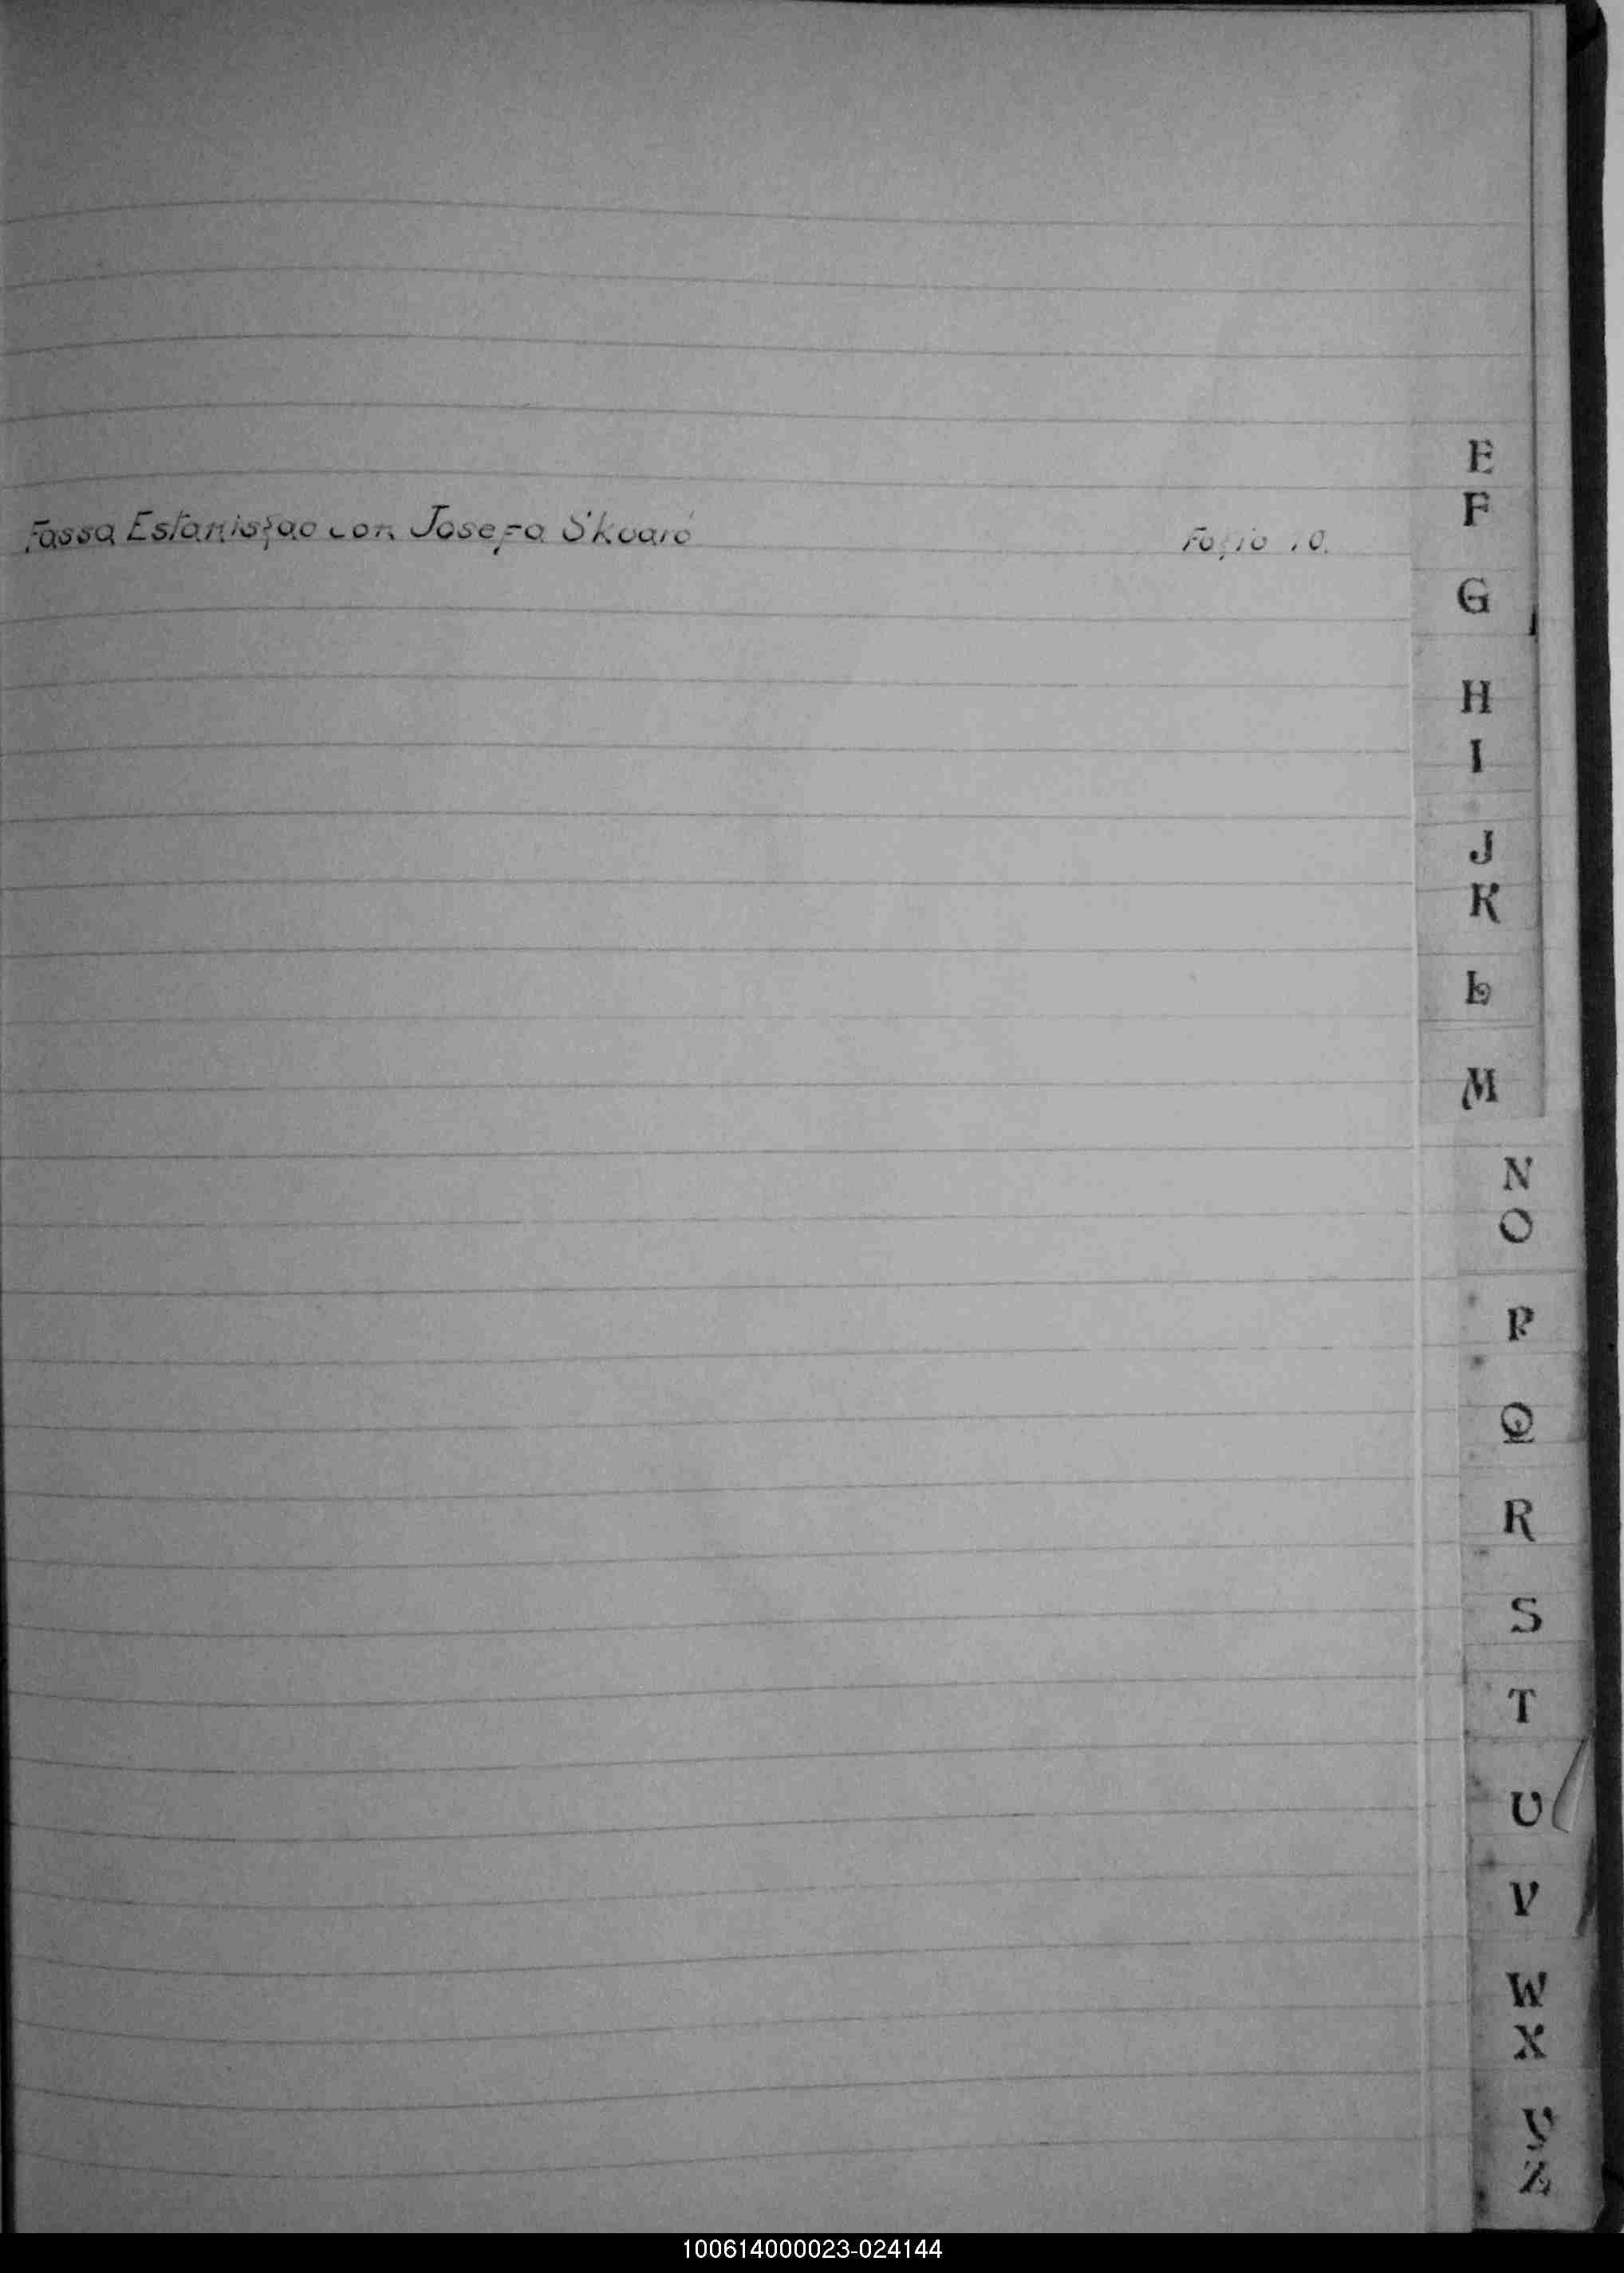 Fassa Estanislao con Josefa Skvaré Folio 10.
E
F
G
H
I
J
K
L
M
N
O
P
Q
R
S
T
U
V
W
X
Y
Z
100614000023-024144